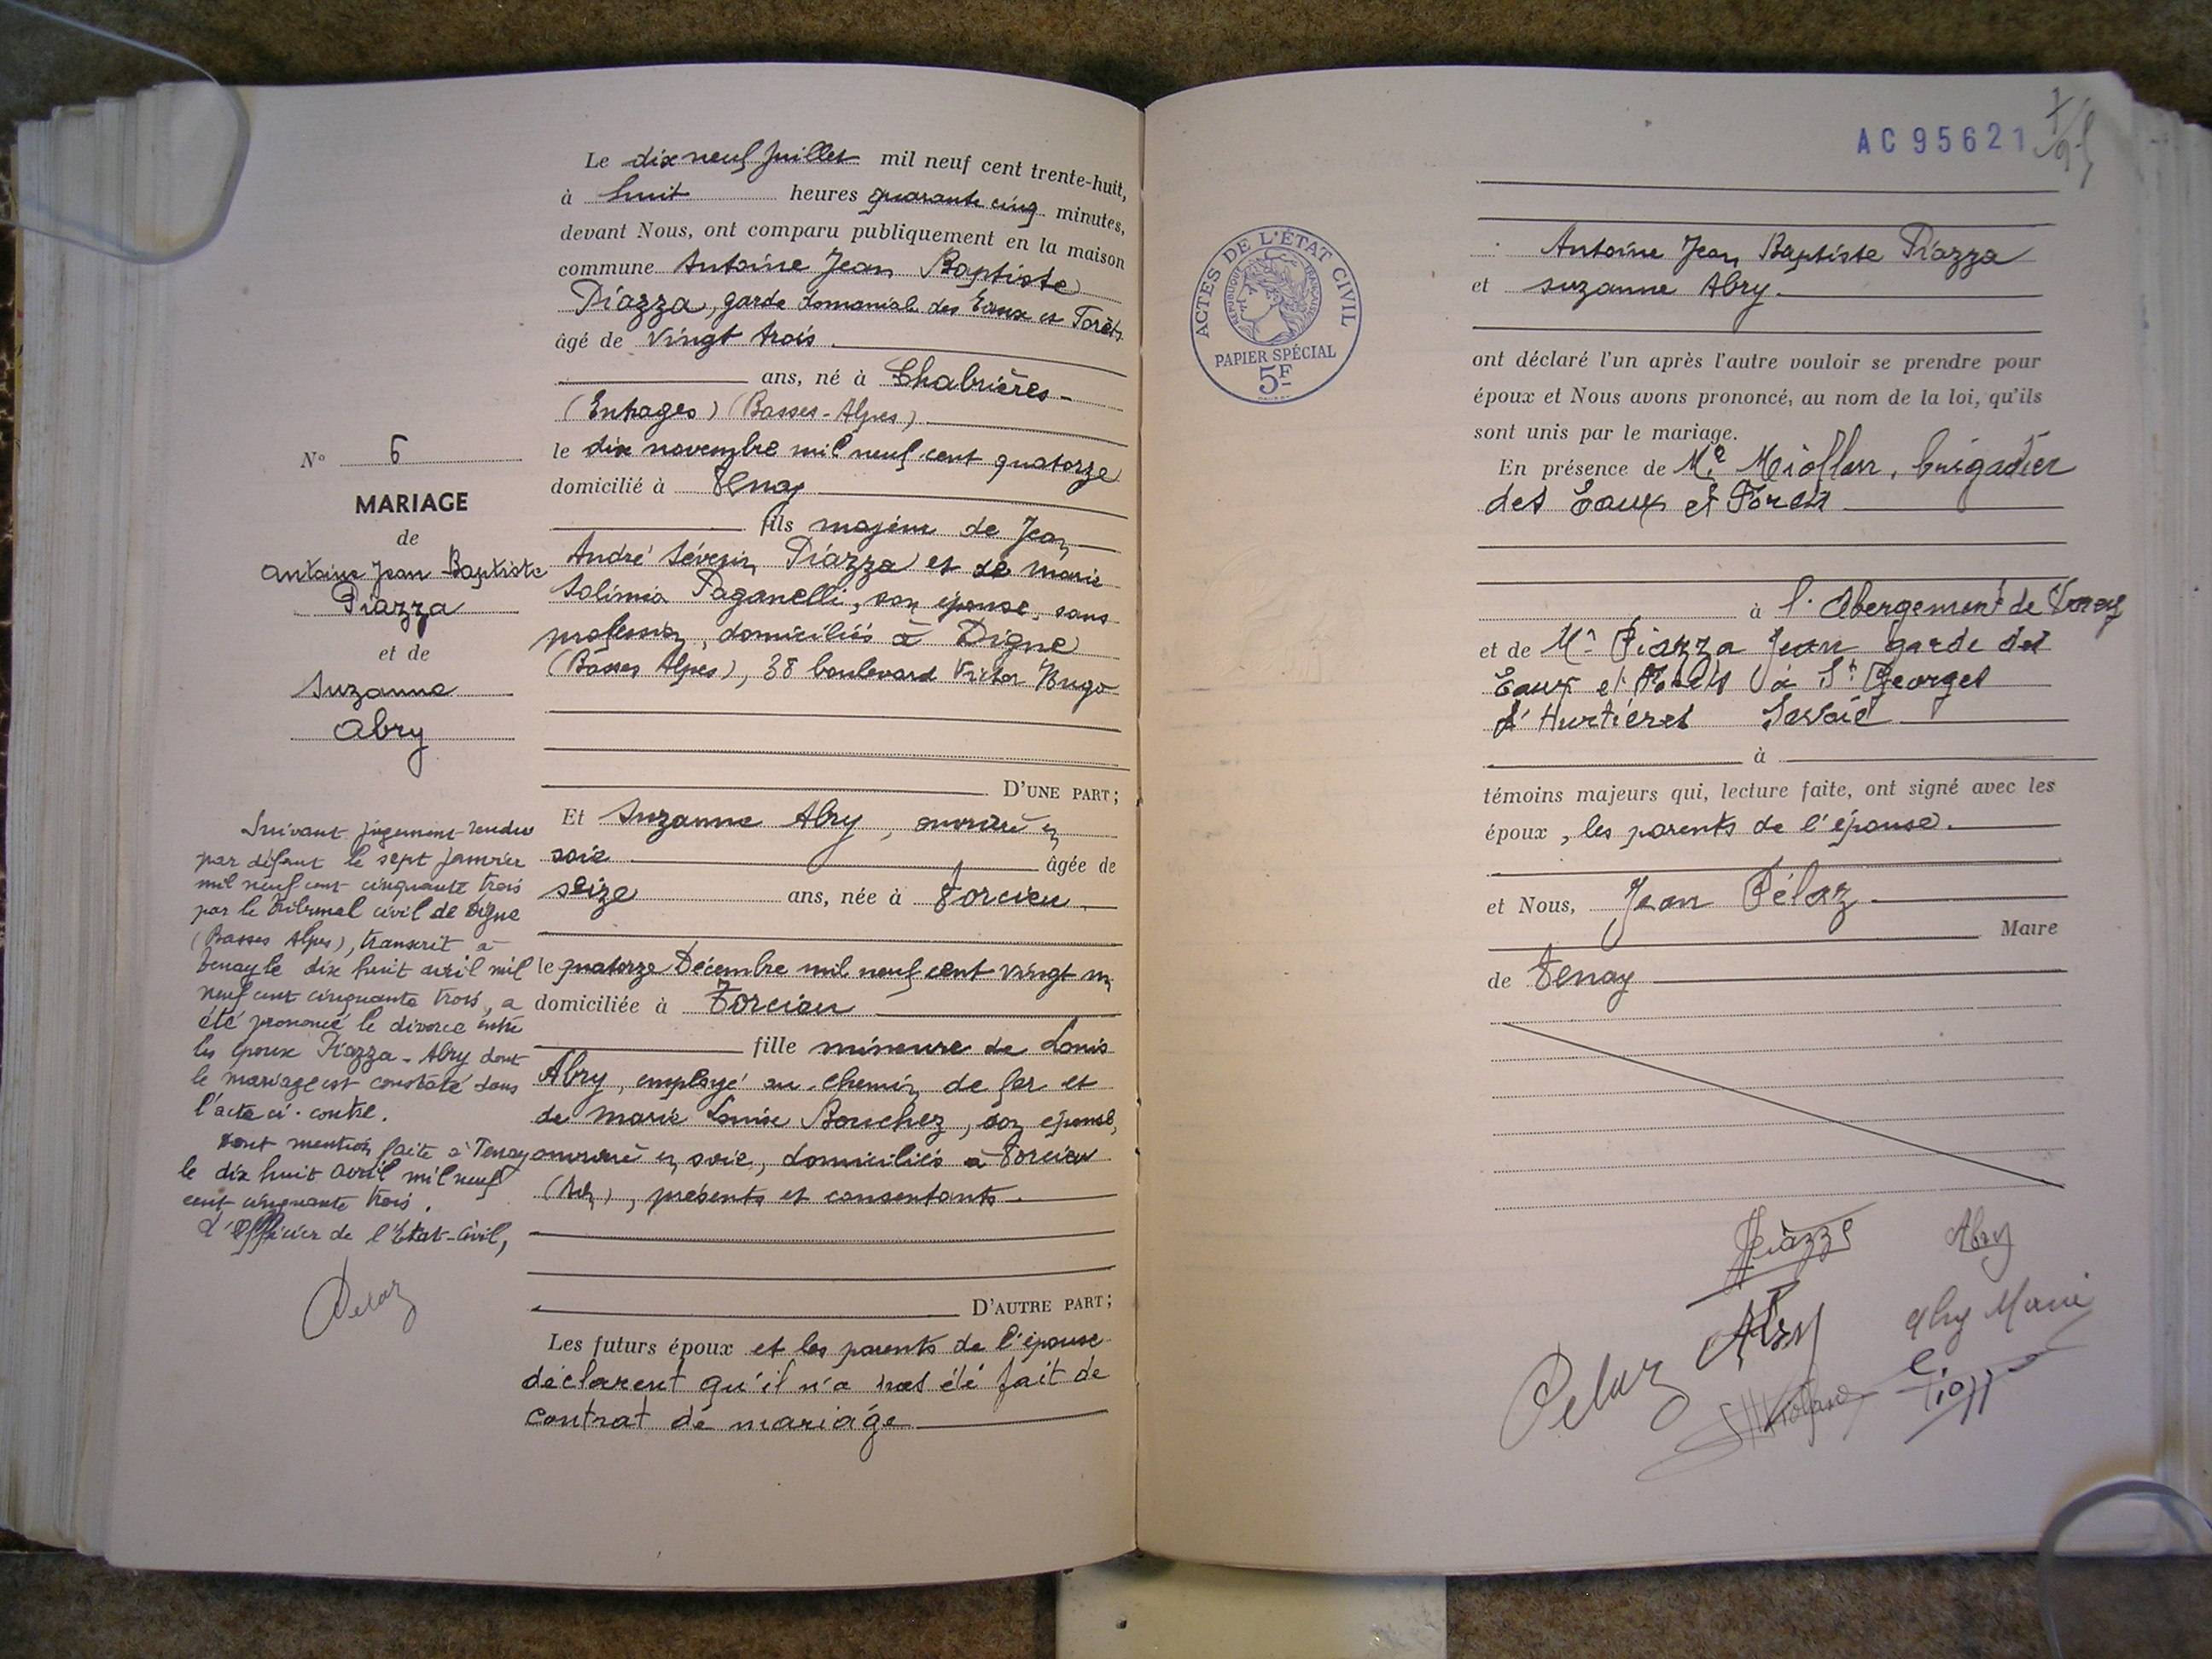 Le dix neuf Juillet mil neuf cent trente-huit,
à huit heures quarante cinq minutes,
devant Nous, ont comparu publiquement en la maison
commune Antoine Jean Baptiste
Piazza, garde domanial des Eaux et Forêts
âgé de Vingt trois
ans, né à Chabrières
(Entrages) (Basses-Alpes)
le dix novembre mil neuf cent quatorze
domicilié à Tenay
fils majeur de Jean
André Séverin Piazza et de Marie
Solimia Paganelli, son épouse, sans
profession, domiciliés à Digne
(Basses Alpes), 38 boulevard Victor Hugo
D'UNE PART;
Et Suzanne Abry, ouvrière en
soie âgée de
seize ans, née à Torcieu
le quatorze Décembre mil neuf cent vingt un
domiciliée à Torcieu
fille mineure de Louis
Abry, employé au chemin de fer et
de Marie Louise Bouchez, son épouse,
ouvrière en soie, domiciliés à Torcieu
(Ain), présents et consentants.
D'AUTRE PART;
Les futurs époux et les parents de l'épouse
déclarent qu'il n'a pas été fait de
contrat de mariage
N° 6
MARIAGE
de
Antoine Jean Baptiste
Piazza
et de
Suzanne
Abry
Suivant jugement rendu
par défaut le sept janvier
mil neuf cent cinquante trois
par le Tribunal civil de Digne
(Basses Alpes), transcrit à
Tenay le dix huit avril mil
neuf cent cinquante trois, a
été prononcé le divorce entre
les époux Piazza-Abry dont
le mariage est constaté dans
l'acte ci-contre.
Dont mention faite à Tenay
le dix huit avril mil neuf
cent cinquante trois.
L'Officier de l'Etat-Civil,
Pelaz
AC 95621
ACTES DE L'ÉTAT CIVIL
RÉPUBLIQUE FRANÇAISE
PAPIER SPÉCIAL
5F
Antoine Jean Baptiste Piazza
et Suzanne Abry.
ont déclaré l'un après l'autre vouloir se prendre pour
époux et Nous avons prononcé, au nom de la loi, qu'ils
sont unis par le mariage.
En présence de brigadier
des Eaux et Forêts
à l'Abergement de Varey
et de Mr Piazza Jean garde des
Eaux et Forêts à St Georges
d'Hurtières Savoie
à
témoins majeurs qui, lecture faite, ont signé avec les
époux, les parents de l'épouse.
et Nous, Jean Pélaz
Maire
de Tenay
Piazza
Abry
Abry
Abry Marie
Pelaz
Piazza